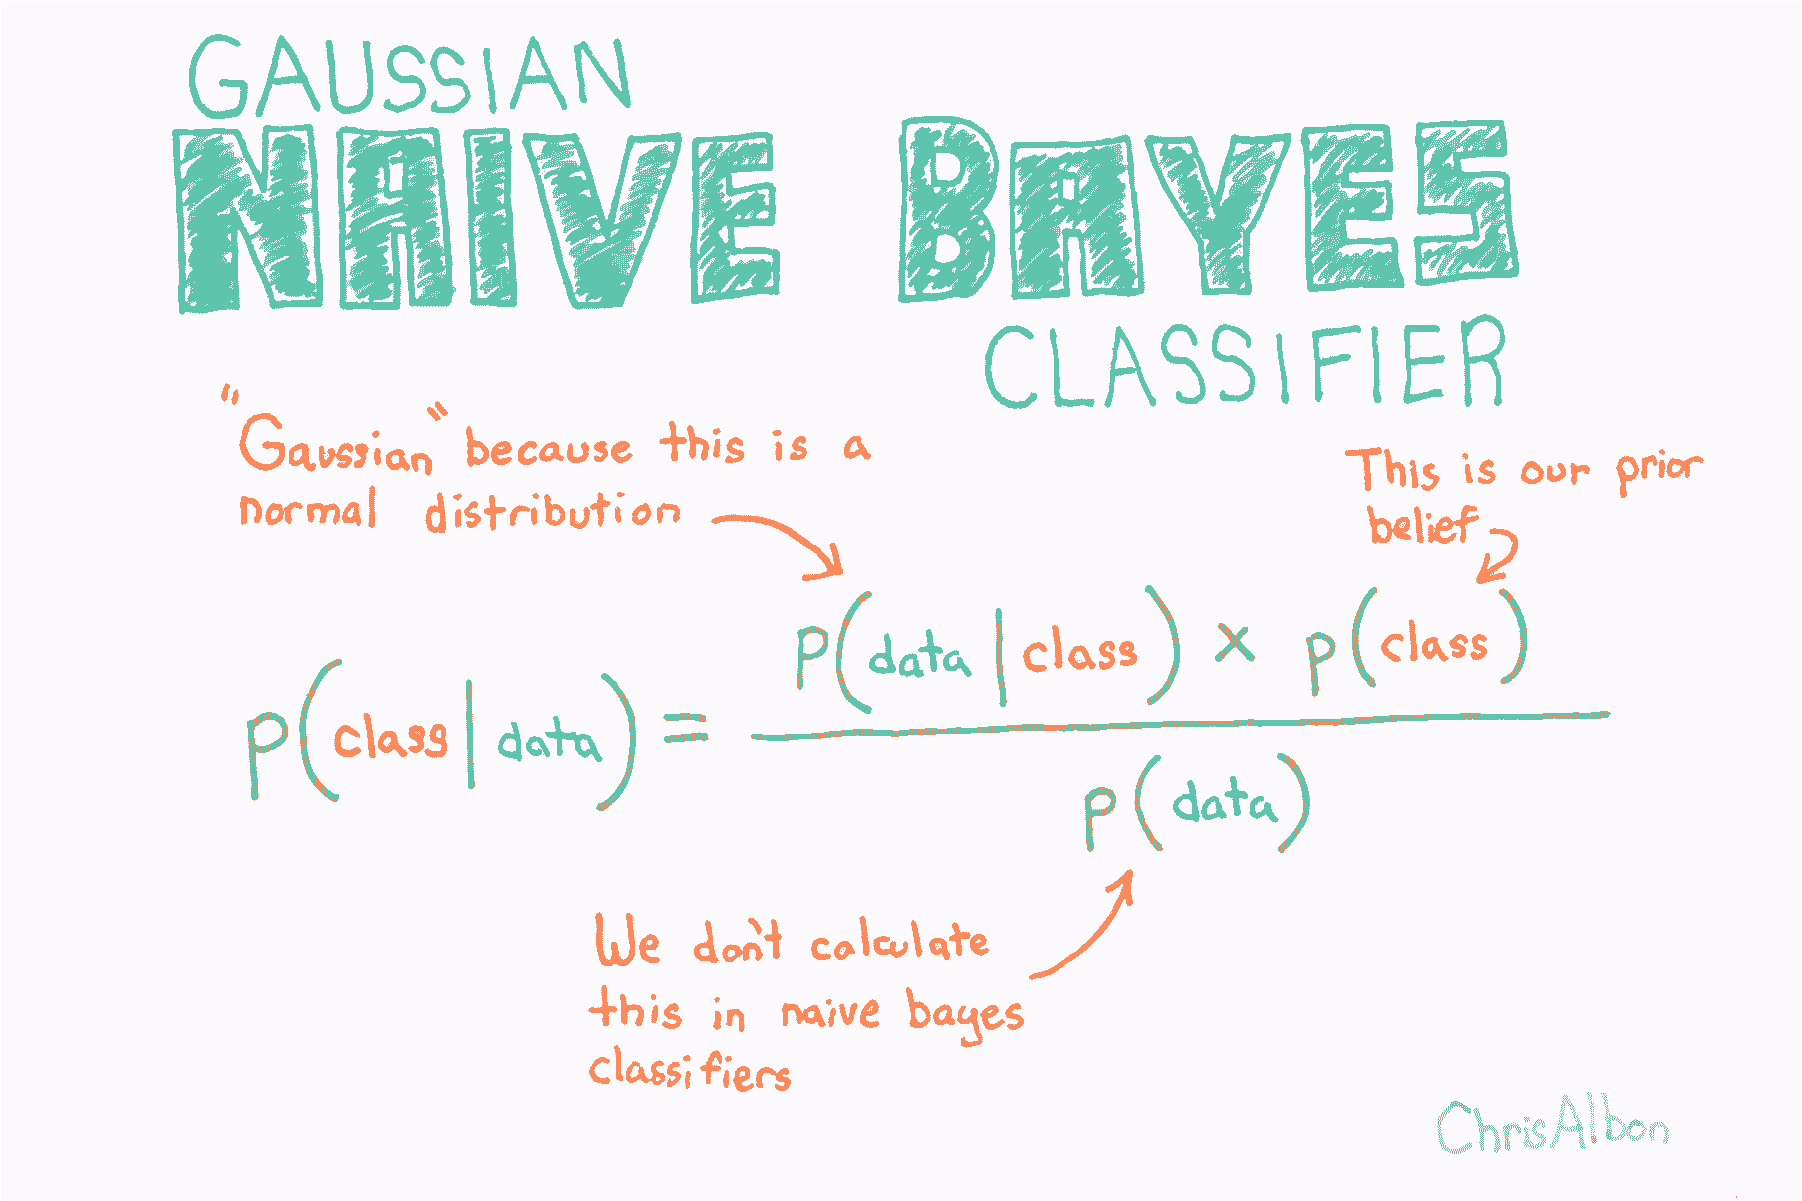 GAUSSIAN
NAIVE BAYES
CLASSIFIER
"Gaussian" because this is a
normal distribution
This is our prior
belief
p(class | data) = p(data | class) × p(class)
p(data)
We don't calculate
this in naive bayes
classifiers
ChrisAlbon